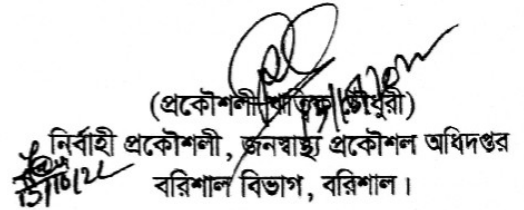 (প্রকৌশলী চৌধুরী)
নির্বাহী প্রকৌশলী, জনস্বাস্থ্য প্রকৌশল অধিদপ্তর
বরিশাল বিভাগ, বরিশাল।